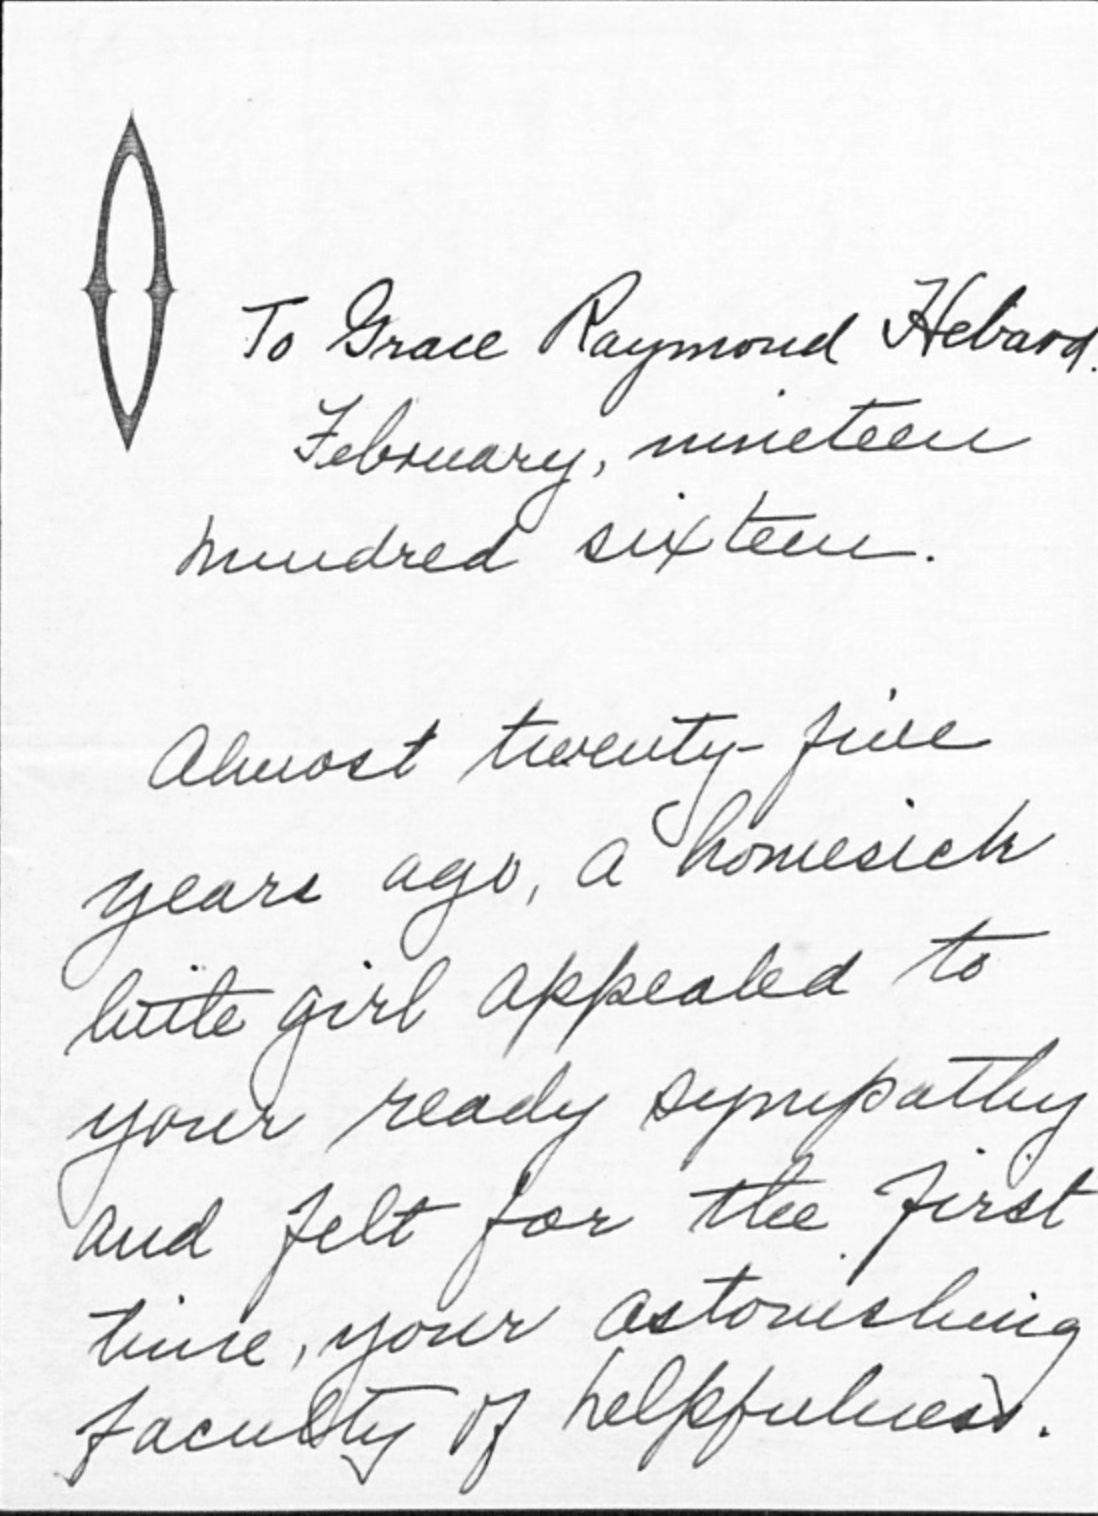 To Grace Raymond Hebard.
February, nineteen
hundred sixteen.
Almost twenty-five
years ago, a homesick
little girl appealed to
your ready sympathy
and felt for the first
time, your astonishing
faculty of helpfulness.